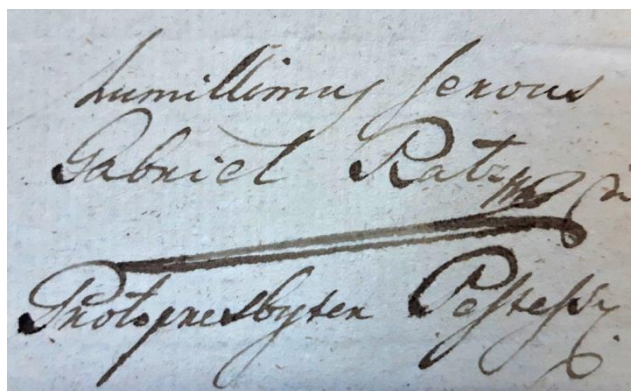 humillimus servus
Gabriel Ratz
Protopresbyter